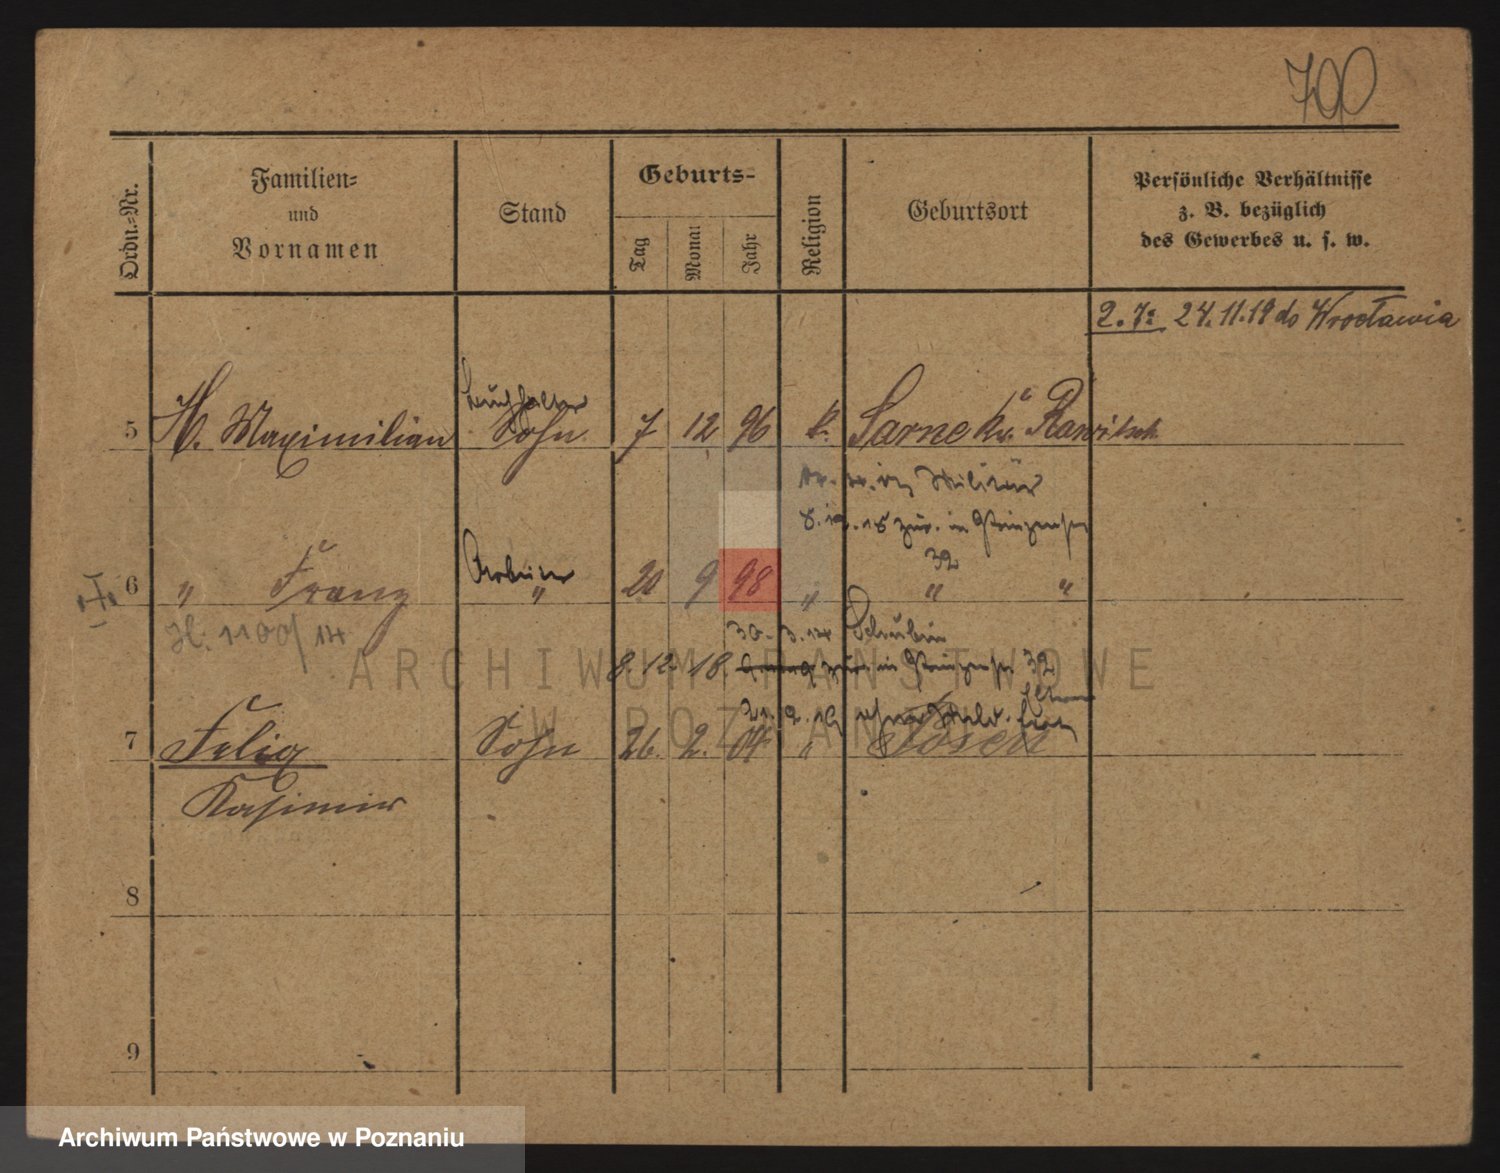 700
Ordn.-Nr.
Familien-
und
Vornamen
Stand
Geburts-
Tag
Monat
Jahr
Religion
Geburtsort
Persönliche Verhältnisse
z. B. bezüglich
des Gewerbes u. s. w.
2. 7: 24.11.19 do Wrocławia
Buchhalter
5 H. Maximilian Sohn 7 12 96 k. Sarne Kr. Rawitsch
Militär
zur. in
32
Arbeiter
6 " Franz " 20 9 98 " " "
H. 1100/14
30. 3. 14 Schubin
8. 12. 18. zur. in 32
7 Felix Sohn 26. 2. 04 " Posen
Kasimir
8
9
ARCHIWUM PAŃSTWOWE
W POZNANIU
Archiwum Państwowe w Poznaniu